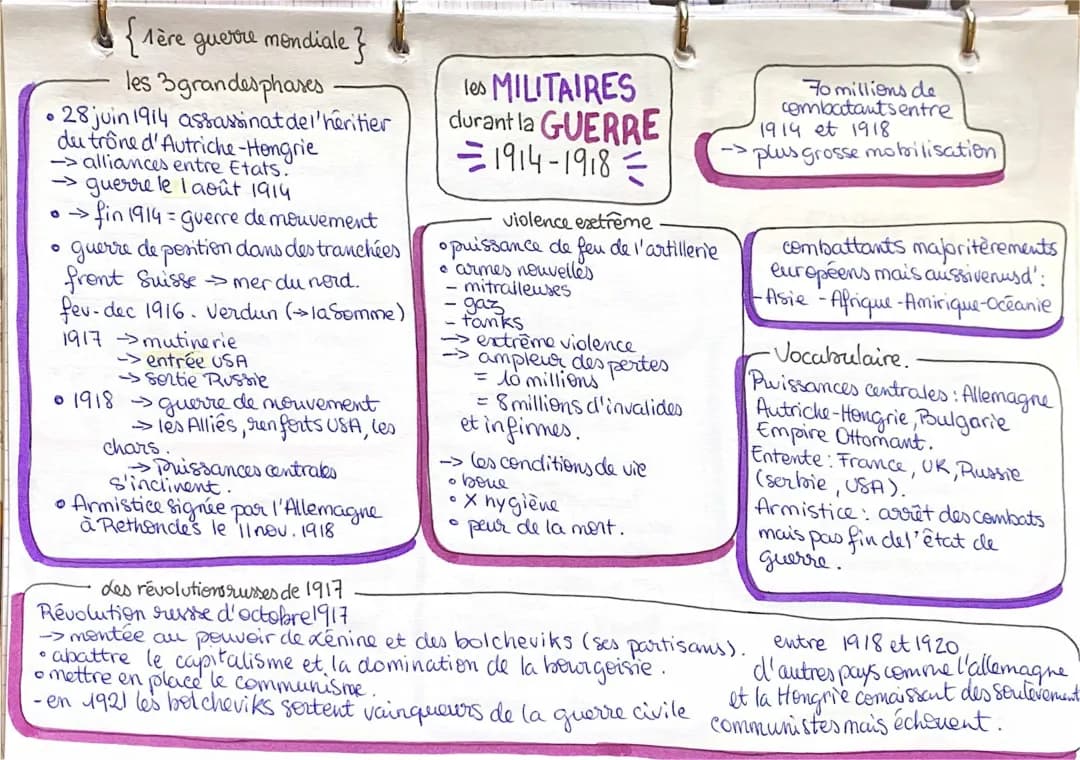 {1ère guerre mondiale}
les 3 grandes phases
• 28 juin 1914 assassinat de l'héritier
du trône d'Autriche-Hongrie
-> alliances entre Etats.
-> guerre le 1 août 1914
• -> fin 1914 = guerre de mouvement
• guerre de position dans des tranchées
front Suisse -> mer du nord.
fev-dec 1916. Verdun (-> la Somme)
1917 -> mutinerie
-> entrée USA
-> sortie Russie
• 1918 -> guerre de mouvement
-> les Alliés, renforts USA, les
chars.
-> Puissances centrales
s'inclinent.
• Armistice signée par l'Allemagne
à Rethondes le 11 nov. 1918
les MILITAIRES
durant la GUERRE
1914-1918
violence extrême
• puissance de feu de l'artillerie
• armes nouvelles
- mitralleuses
- gaz
- tanks
-> extrême violence
-> ampleur des pertes
= 10 millions
= 8 millions d'invalides
et infirmes.
-> les conditions de vie
• boue
• X hygiène
• peur de la mort.
70 millions de
combatants entre
1914 et 1918
-> plus grosse mobilisation
combattants majoritèrements
européens mais aussi venus d':
- Asie - Afrique - Amirique - Océanie
Vocabulaire.
Puissances centrales : Allemagne
Autriche-Hongrie, Bulgarie
Empire Ottomant.
Entente : France, UK, Russie
(serbie, USA).
Armistice : arrêt des combats
mais pas fin de l'état de
guerre.
les révolutions russes de 1917
Révolution russe d'octobre 1917
-> montée au pouvoir de Lénine et des bolcheviks (ses partisans).
• abattre le capitalisme et la domination de la bourgoisie.
• mettre en place le communisme.
- en 1921 les bolcheviks sortent vainqueurs de la guerre civile
entre 1918 et 1920
d'autres pays comme l'allemagne
et la Hongrie connaissent des soulevement
communistes mais échouent.